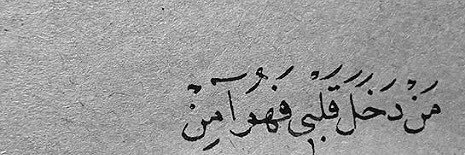 مَنْ دَخَلَ قَلْبِي فَهُوَ آمِنْ